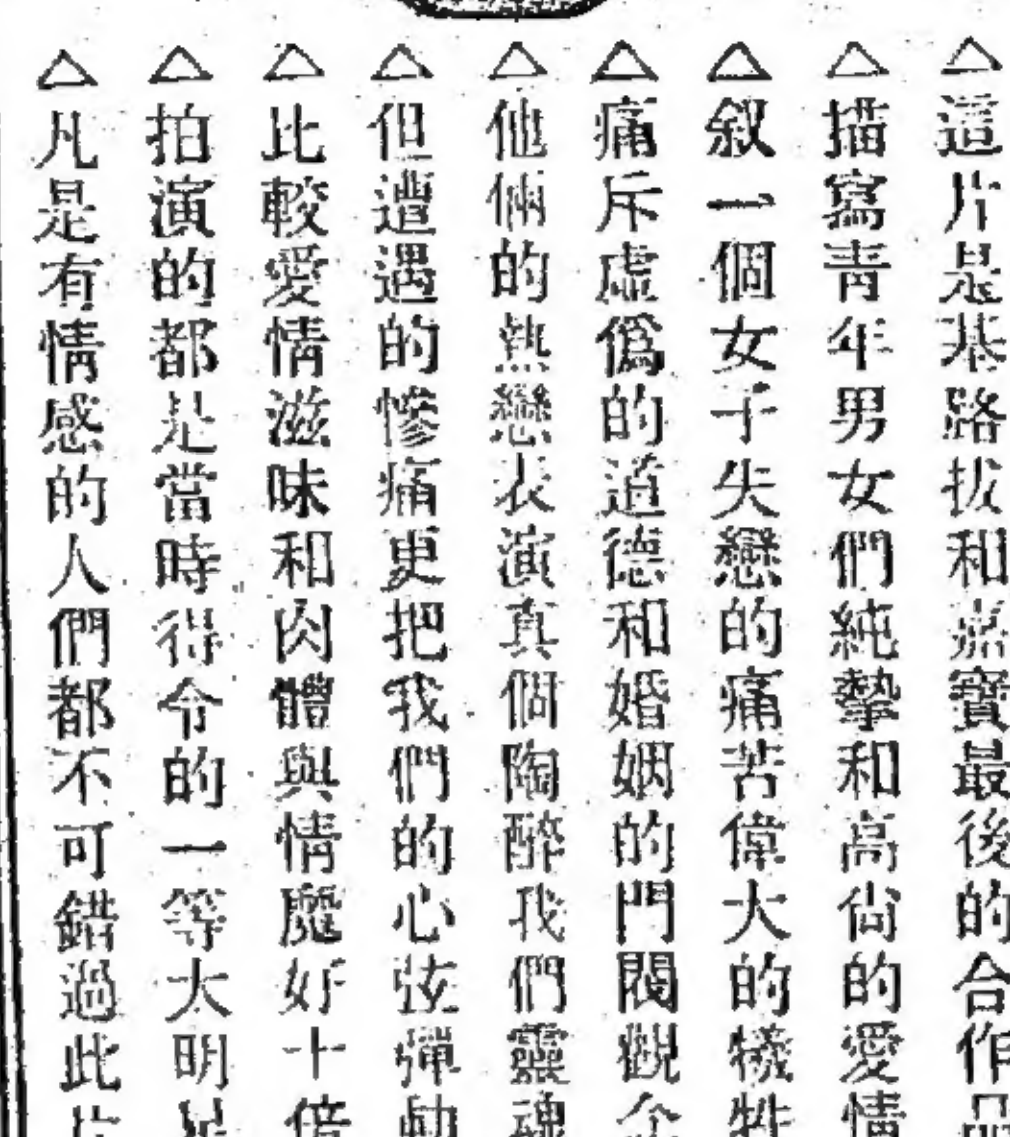 △這片是基路拔和嘉寶最後的合作品
△描寫青年男女們純摯和高尙的愛情
△叙一個女子失戀的痛苦偉大的犧牲
△痛斥虛僞的道德和婚姻的門閥觀念
△他倆的熱戀表演真個陶醉我們靈魂
△但遭遇的慘痛更把我們的心弦彈動
△比較愛情滋味和肉體與情魔好十倍
△拍演的都是當時得令的一等大明星
△凡是有情感的人們都不可錯過此片